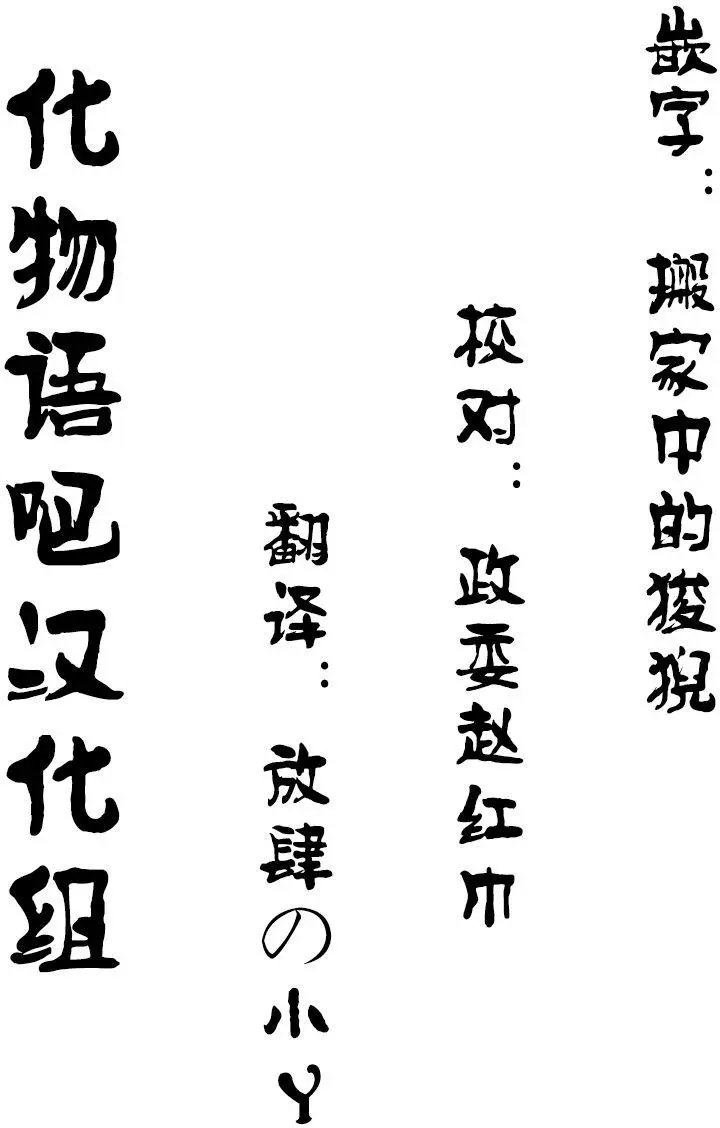 化物语吧汉化组
翻译： 放肆の小丫
校对： 政委赵红巾
嵌字： 搬家中的狻猊